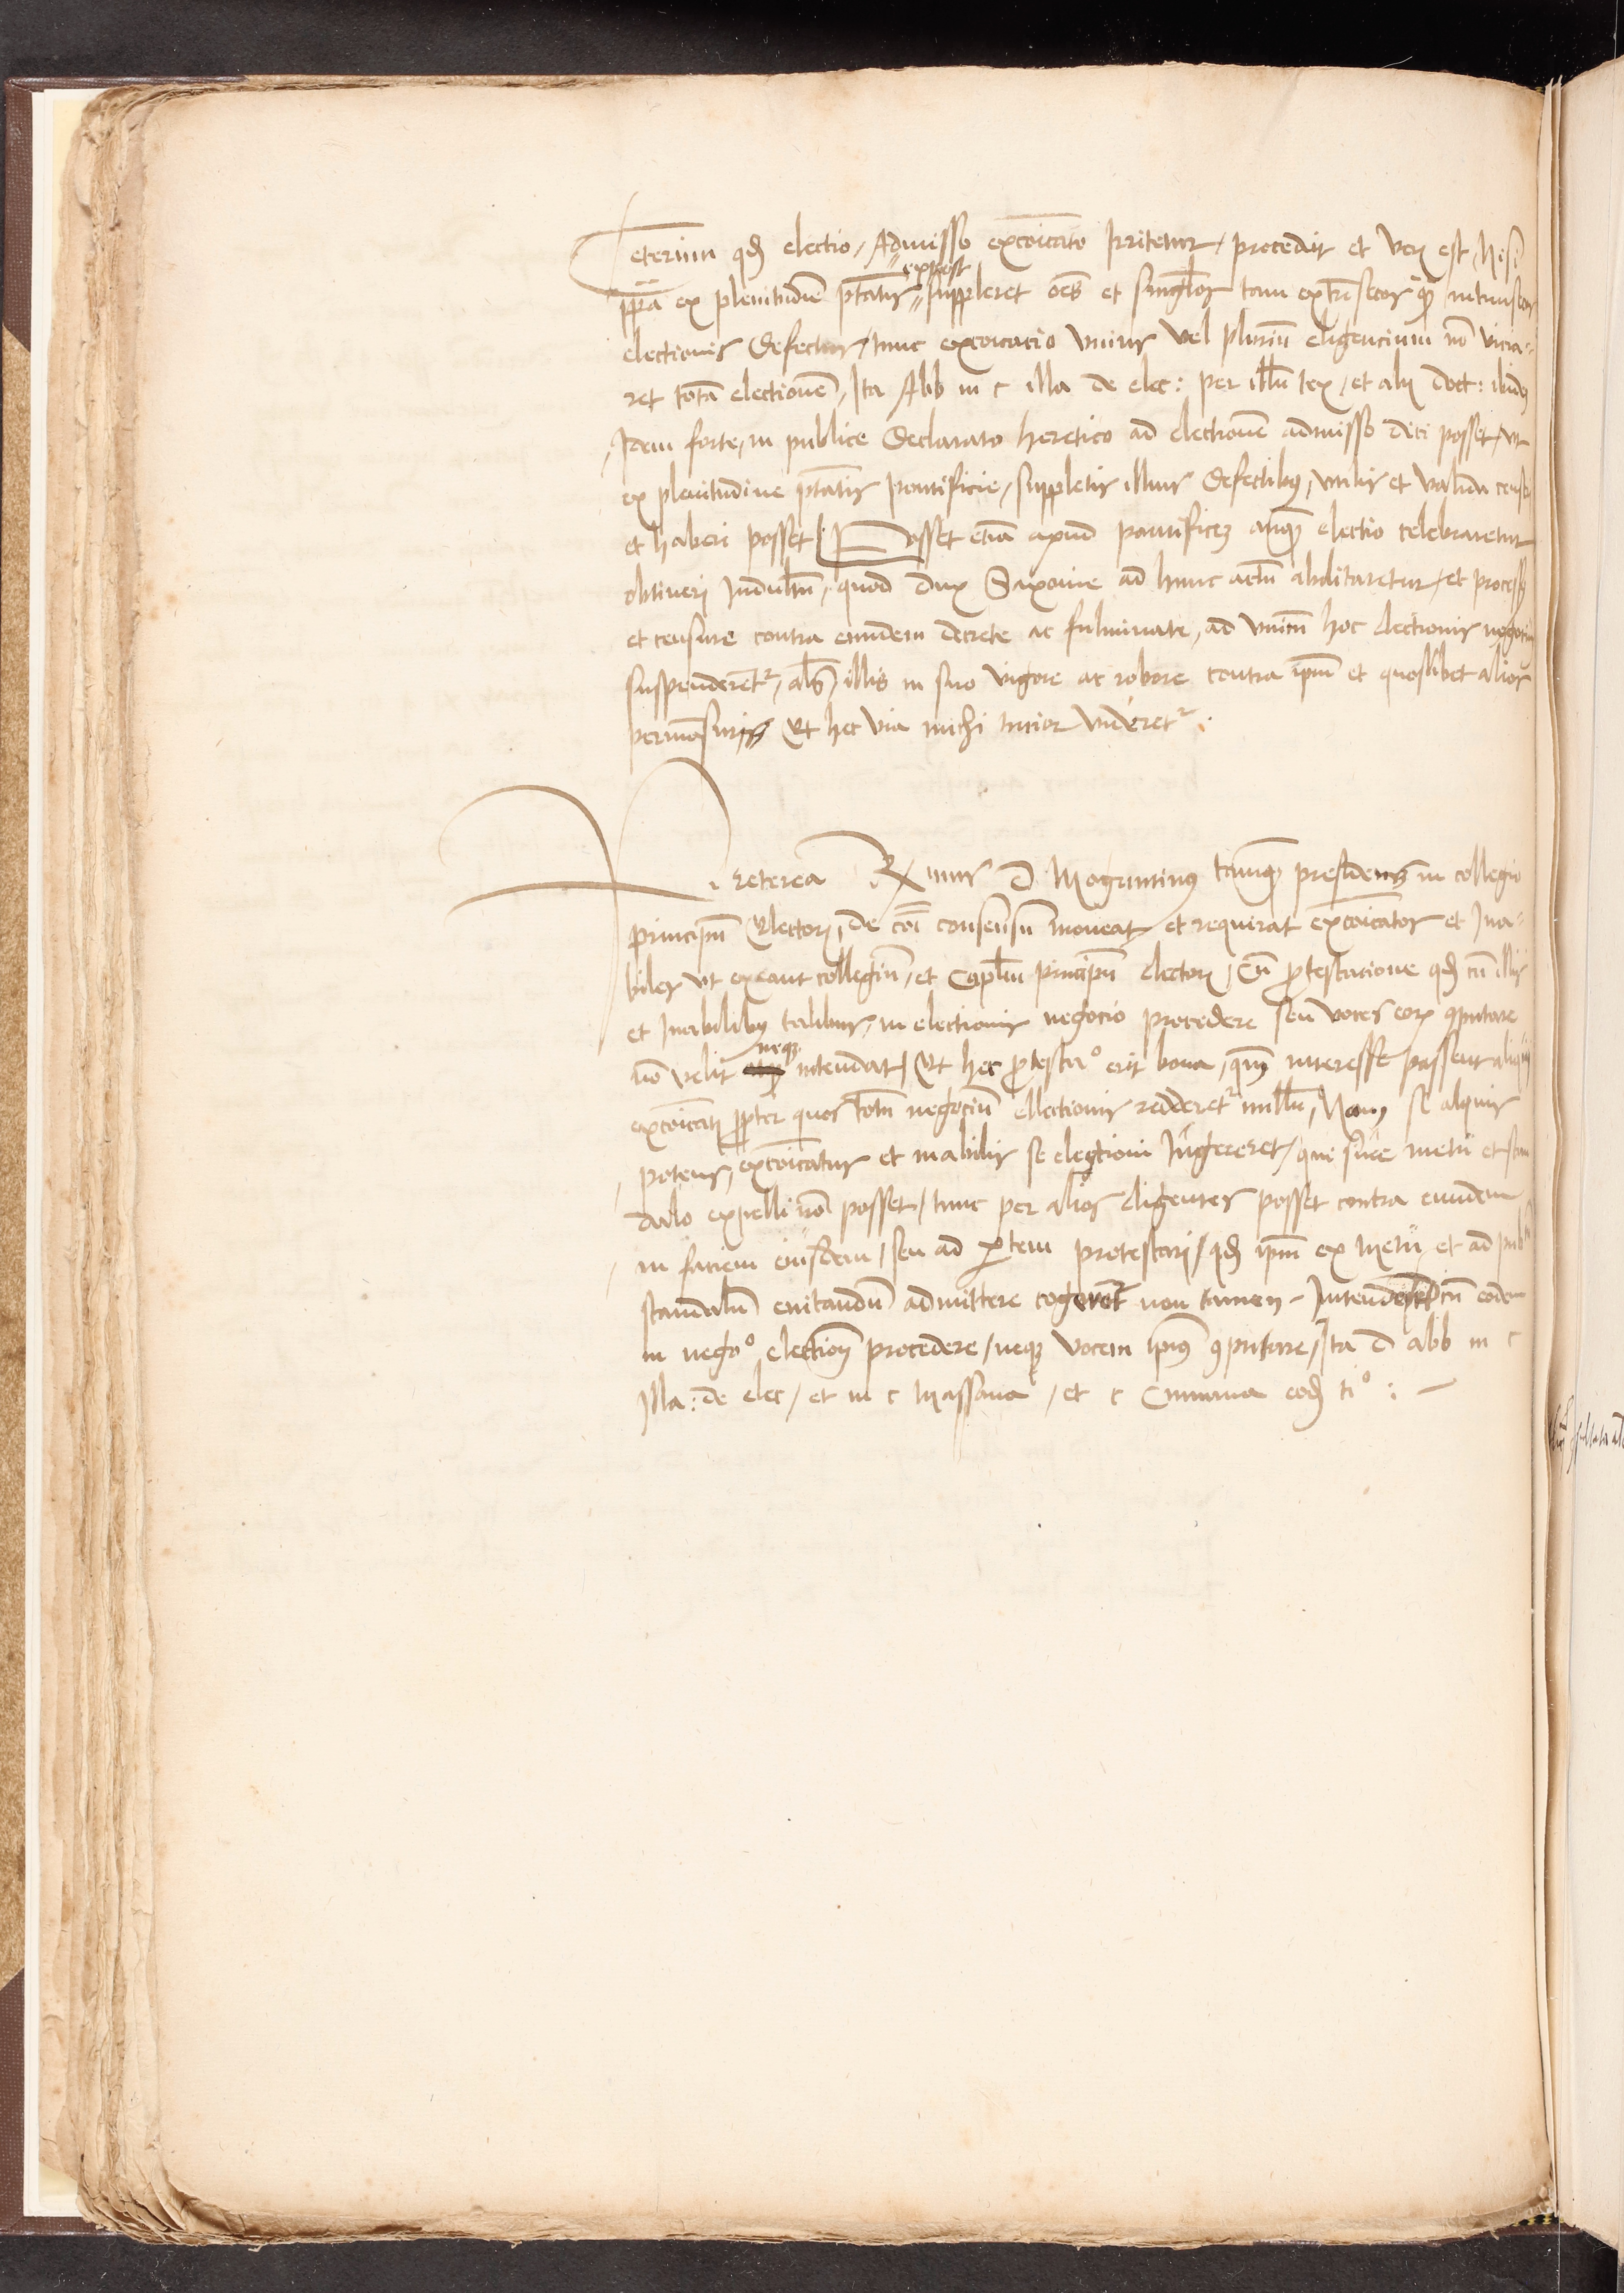 Ceterum qd electio, Admisso excoicato Irritetur, procedit et ver est, Nisi
ppa ex plenitudie ptatis expost suppleret oes et singlos tam extrisecos qz intrinsecos
electionis defectus, tunc excoicatio vnius vel pluriu eligencium no vicia-
ret tota electione, Ita Abb in c illa de elec: per illu tex, et alij doct: ibidez
Idem forte, in publice declarato heretico ad electione admisso dici posset, vt
ex plenitudine ptatis pontificie, suppletis illius defectibus, vtilis et valida
et haberi posset / Posset etia apud pontificez anqz electio celebraretur
obtineri Indultu, quod dux Saxonie ad hunc actu abilitaretur, et processus
et censure contra eundem decrete ac fulminate, ad vnicu hoc electionis negociu
suspenderetr, als illis in suo vigore ac robore contra ipm et quoslibet alios
permasuris Et hec via michi tucior videretr.
Preterea Rmus d Moguntinus tamqz presidens in collegio
principum Electoru, de coi consensu moueat et requirat excoicatos et Ina-
biles vt exeant collegiu, et Caplm principu electoru, Cu protestacione qd cu illis
et Inabilibus talibus, in electionis negocio procedere seu voces eoru computare
no velit neqz intendat, Et hec protestao erit bona, interesse possent aliqui
excoicati propter quos totu negociu ellectionis redderetr nullu, Nam si aliquis
potens, excoicatus et inabilis se electioni Ingereret, qui sine metu et scan
dalo expelli no posset, tunc per alios eligentes posset contra eundem
in faciem eiusdem, seu ad partem protestari, qd ipm ex metu et ad
scandalu euitandu admittere cogeretr non tamen Intenderet cu eodem
in nego electionis procedere, neqz vocem ipius computare, Ita d abb in c
Illa: de elec, et in c Massana, et c Cumana eod tio :-